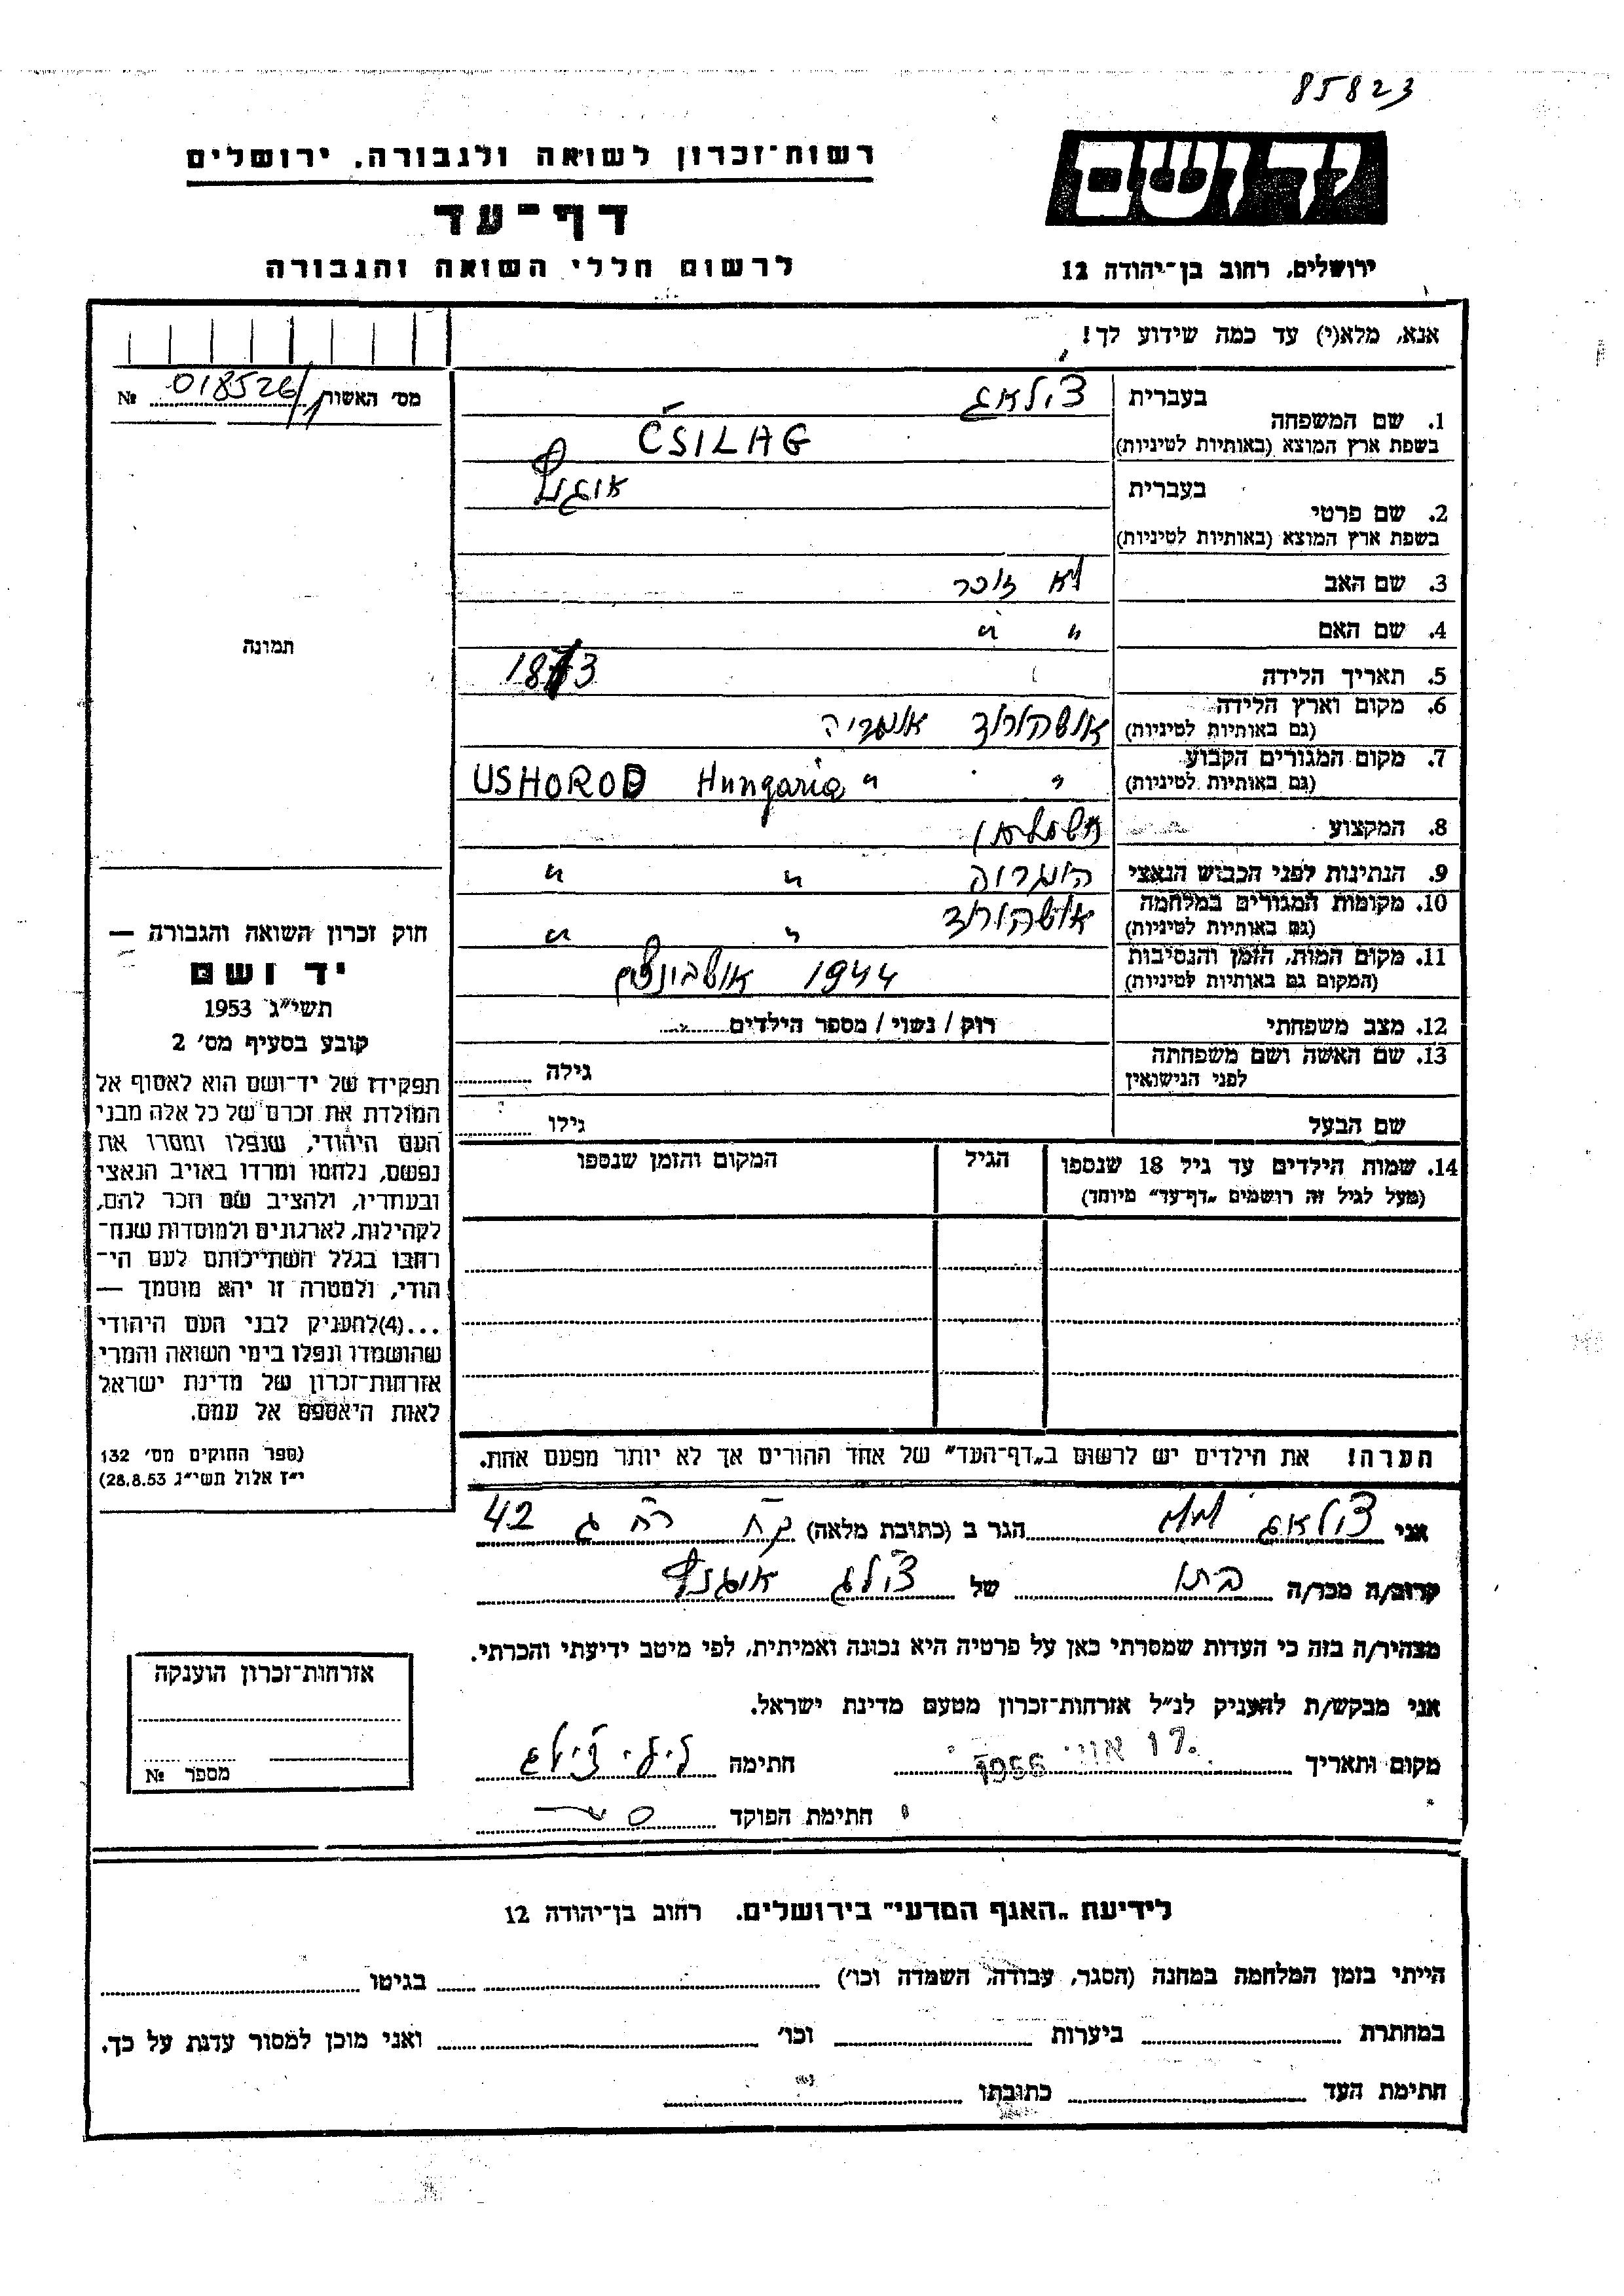 85823
יד ושם
רשות־זכרון לשואה ולגבורה, ירושלים
דף־עד
לרשום חללי השואה והגבורה
ירושלים, רחוב בן־יהודה 12
אנא, מלא(י) עד כמה שידוע לך!
מס׳ האשור 018526/1 №
תמונה
1. שם המשפחה
בעברית צ׳ילאג
בשפת ארץ המוצא (באותיות לטיניות) CSILAG
2. שם פרטי
בעברית
בשפת ארץ המוצא (באותיות לטיניות)
3. שם האב לא זוכר
4. שם האם " "
5. תאריך הלידה 1873
6. מקום וארץ הלידה
(גם באותיות לטיניות) אושהורוד
7. מקום המגורים הקבוע
(גם באותיות לטיניות) " " USHOROD Hungaria
8. המקצוע
9. הנתינות לפני הכבוש הנאצי " "
10. מקומות המגורים במלחמה
(גם באותיות לטיניות) אושהורוד " "
11. מקום המות, הזמן והנסיבות
(המקום גם באותיות לטיניות) 1944
12. מצב משפחתי רוק / נשוי / מספר הילדים
13. שם האשה ושם משפחתה
לפני הנישואין גילה
שם הבעל גילו
14. שמות הילדים עד גיל 18 שנספו
(מעל לגיל זה רושמים „דף־עד״ מיוחד)
הגיל
המקום והזמן שנספו
חוק זכרון השואה והגבורה —
יד ושם
תשי״ג 1953
קובע בסעיף מס׳ 2
תפקידו של יד־ושם הוא לאסוף אל
המולדת את זכרם של כל אלה מבני
העם היהודי, שנפלו ומסרו את
נפשם, נלחמו ומרדו באויב הנאצי
ובעוזריו, ולהציב שם וזכר להם,
לקהילות, לארגונים ולמוסדות שנח־
רבו בגלל השתייכותם לעם הי־
הודי, ולמטרה זו יהא מוסמך —
...(4)להעניק לבני העם היהודי
שהושמדו ונפלו בימי השואה והמרי
אזרחות־זכרון של מדינת ישראל
לאות היאספם אל עמם.
(ספר החוקים מס׳ 132
י״ז אלול תשי״ג 28.8.53)
הערה! את הילדים יש לרשום ב„דף־העד״ של אחד ההורים אך לא יותר מפעם אחת.
אני צ׳ילאג הגר ב (כתובת מלאה) 42
קרוב/ה מכר/ה של
מצהיר/ה בזה כי העדות שמסרתי כאן על פרטיה היא נכונה ואמיתית, לפי מיטב ידיעתי והכרתי.
אני מבקש/ת להעניק לנ״ל אזרחות־זכרון מטעם מדינת ישראל.
מקום ותאריך חתימה
חתימת הפוקד
אזרחות־זכרון הוענקה
מספר №
לידיעת „האגף המדעי״ בירושלים. רחוב בן־יהודה 12
הייתי בזמן המלחמה במחנה (הסגר, עבודה, השמדה וכו׳) בגיטו
במחתרת ביערות וכו׳ ואני מוכן למסור עדות על כך.
חתימת העד כתובתו